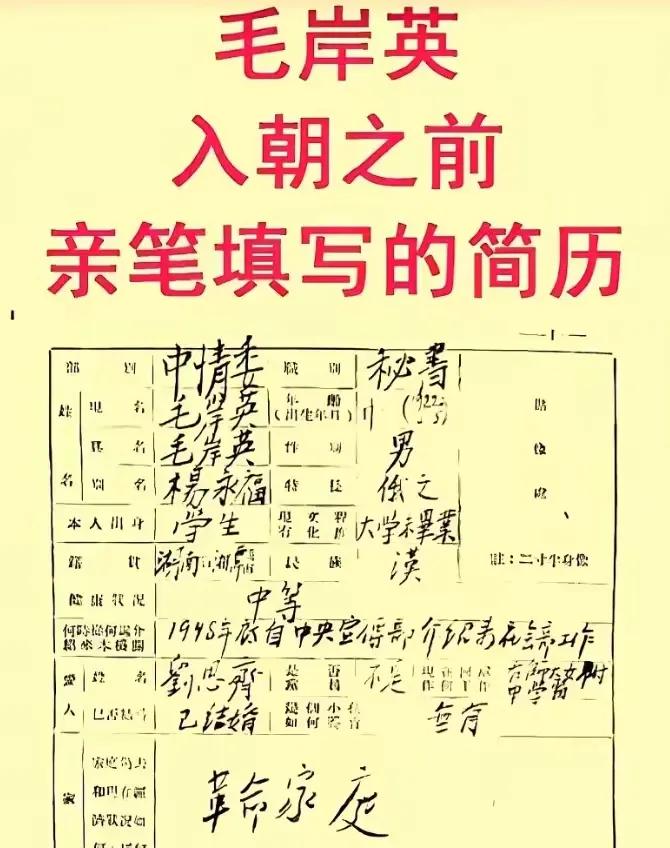 毛岸英
入朝之前
亲笔填写的简历
一1一
部別 中情委 職別 秘書
姓名 現名 毛岸英 年齡(出生年月) (1922
真名 毛岸英 性別 男
別名 楊永福 特長 俄文
本人出身 学生 現有文化程 大学未畢業
籍貫 湖南湘潭 民族 漢
註:二寸半身像
健康狀況 中等
何時從何處介紹來本機關 1948年底自中央宣傳部介绍来社会部工作
愛人 姓名 劉思齊 是否黨員 不是 現在何處作何工作
已否結婚 已結婚 無有
家庭過去和現在經濟狀況如何 革命家庭
家